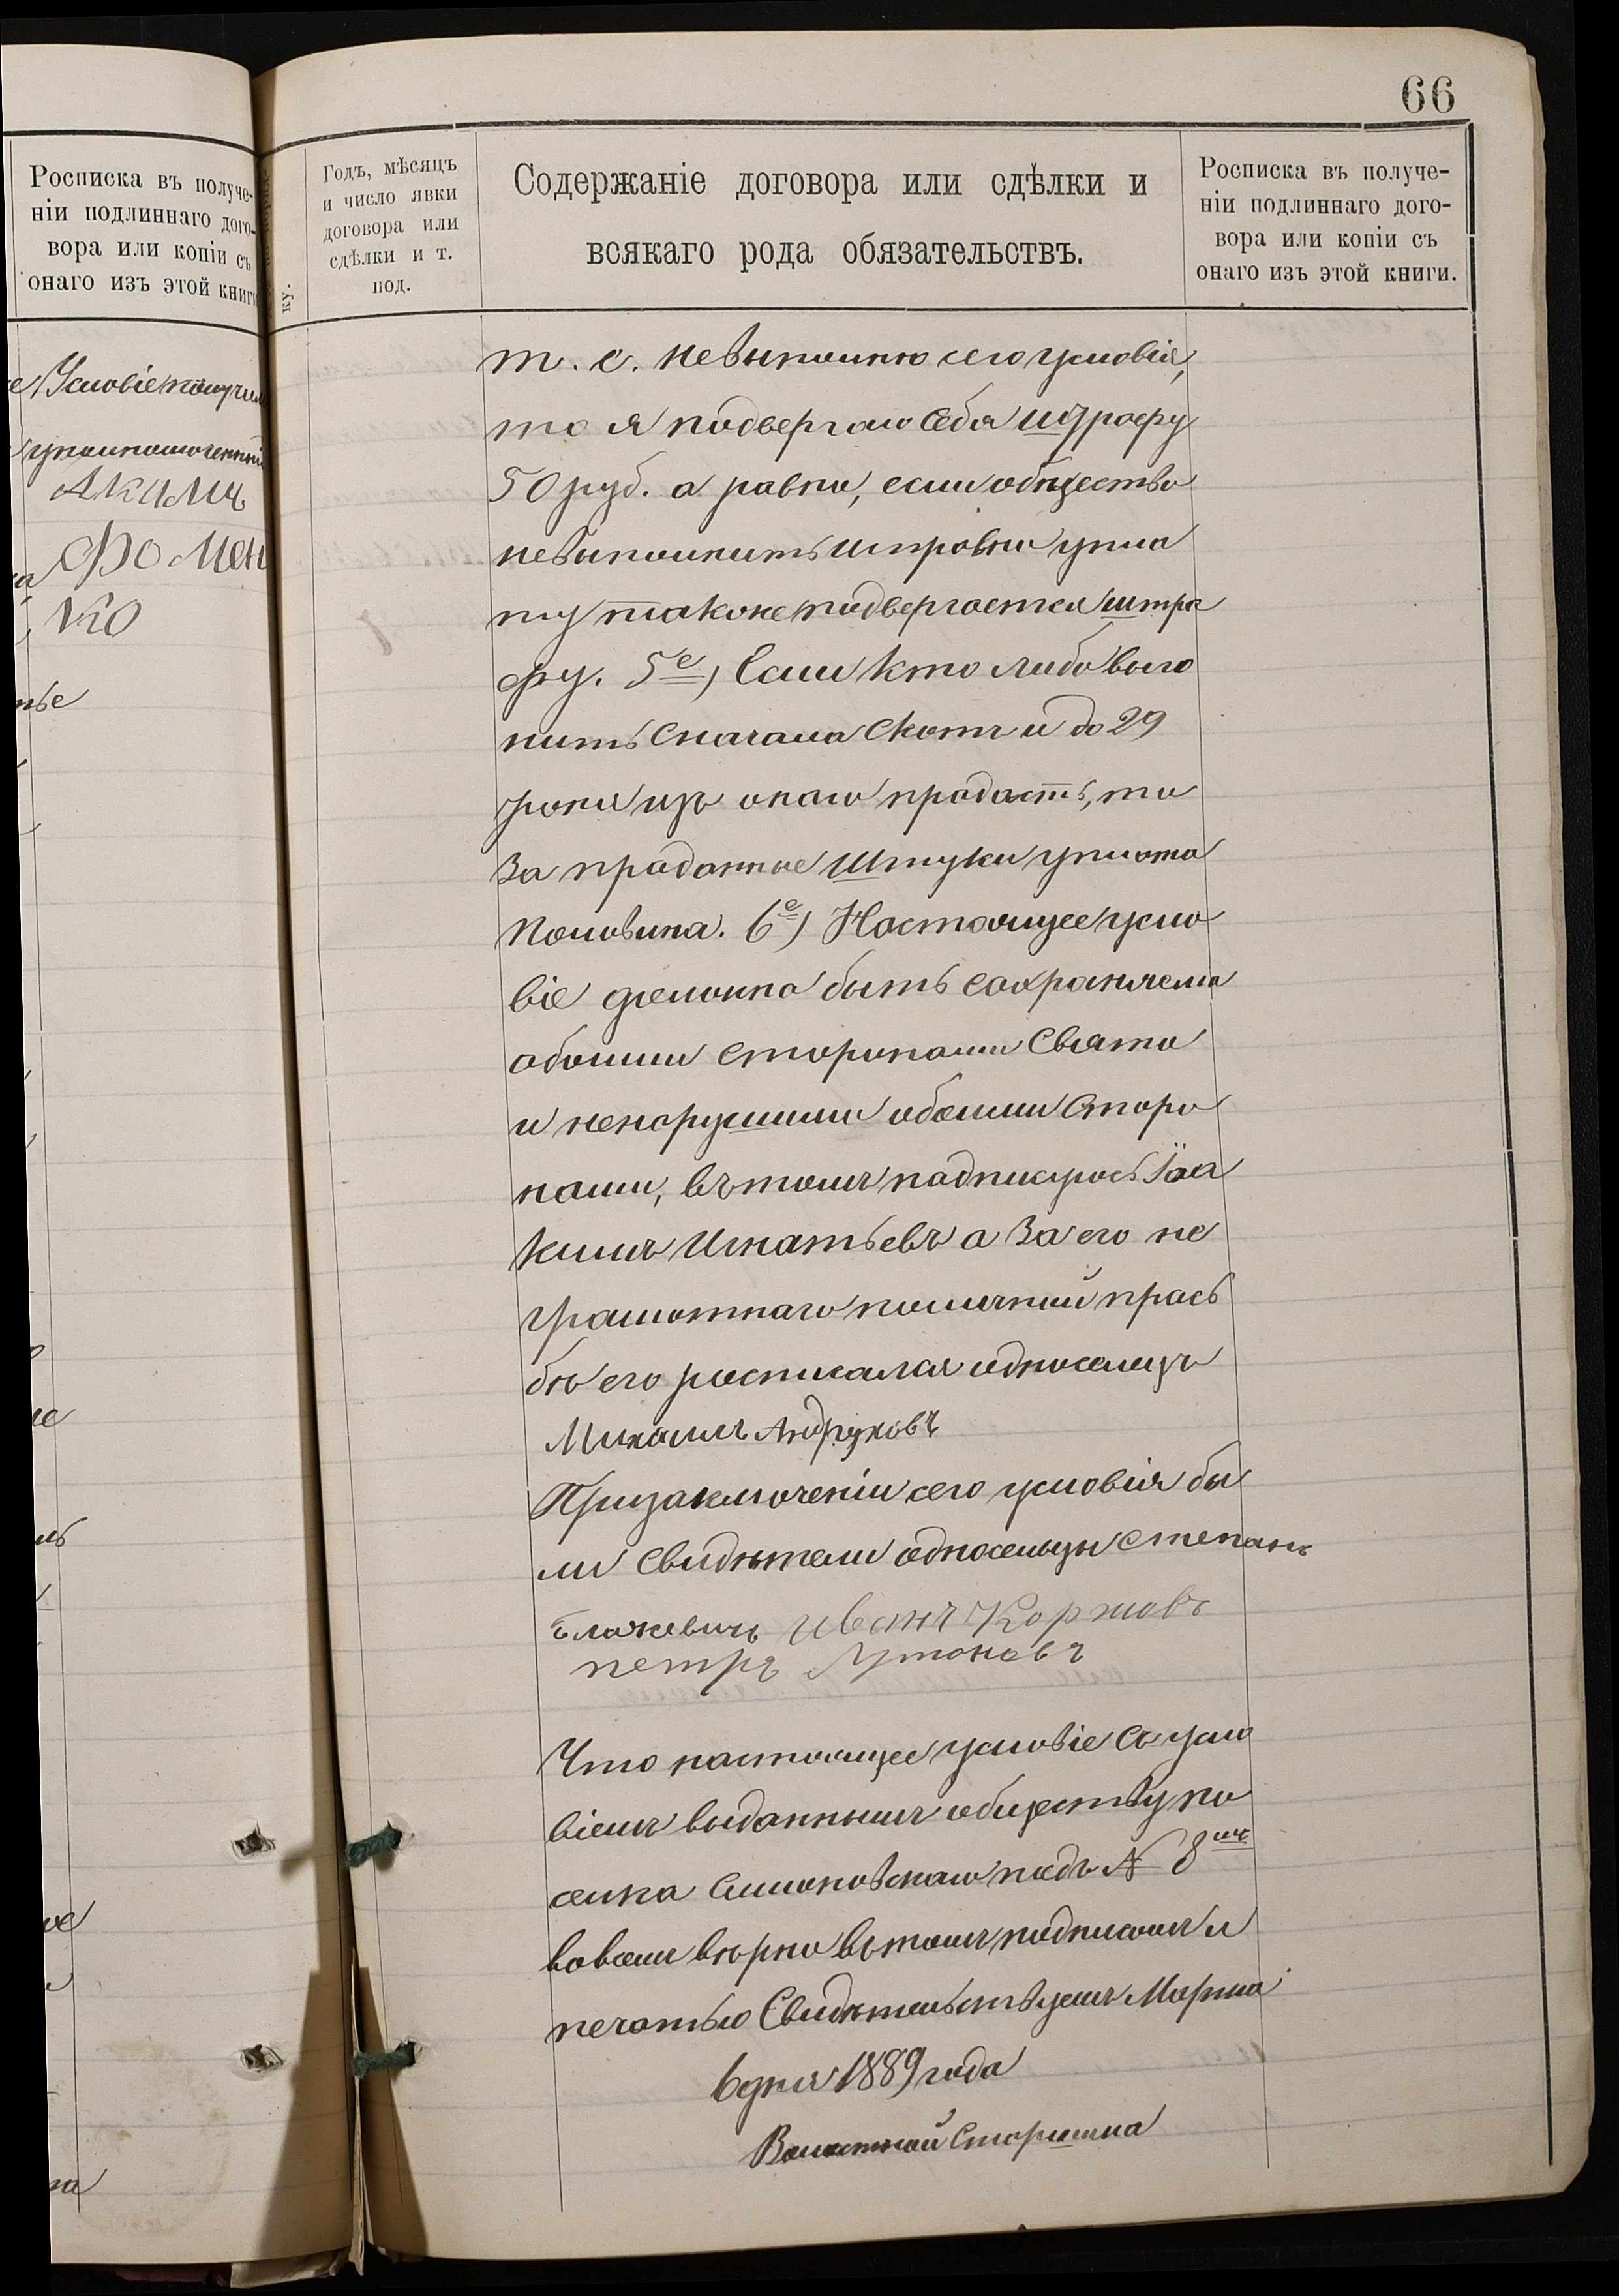 66
Росписка въ получе-
ніи подлиннаго дого-
вора или копіи съ
онаго изъ этой книги
Условіе получилъ
уполномоченный
Акимъ
Фомен
ко
Годъ, мѣсяцъ
и число явки
договора или
сдѣлки и т.
под.
Содержаніе договора или сдѣлки и
всякаго рода обязательствъ.
Росписка въ получе-
ніи подлиннаго дого-
вора или копіи съ
онаго изъ этой книги.
т. е. невыполню сего условія,
то я подвергаю себя штрафу
50 руб. а равно, если общество
невыполнитъ
ту также подвергается штра
фу. 5е) Если кто либо выго
нитъ сначала скотъ и до 29
Іюня изъ онаго продастъ, то
за проданные штуки уплота
половина. 6е) Настоящее усло
віе должно быть сохраняемо
обоими сторонами свято
и ненарушимо обоими сторо
нами, въ томъ подписуюсь Іоа
кимъ Игнатьевъ а за его не
грамотнаго поличной прось
бѣ его росписался односелецъ
Михаилъ Андруховъ
При заключеніи сего условія бы
ли свидѣтели односельцы Степанъ
Блажевичъ Иванъ Коржовъ
петръ Лутоновъ
Что настоящее условіе съ усло
віемъ выданнымъ обществу по
селка Симоновскаго подъ № 8мъ
вовсемъ вѣрно въ томъ подписомъ и
печатью Свидѣтельствуемъ Марта
6 дня 1889 года
Волостной Старшина